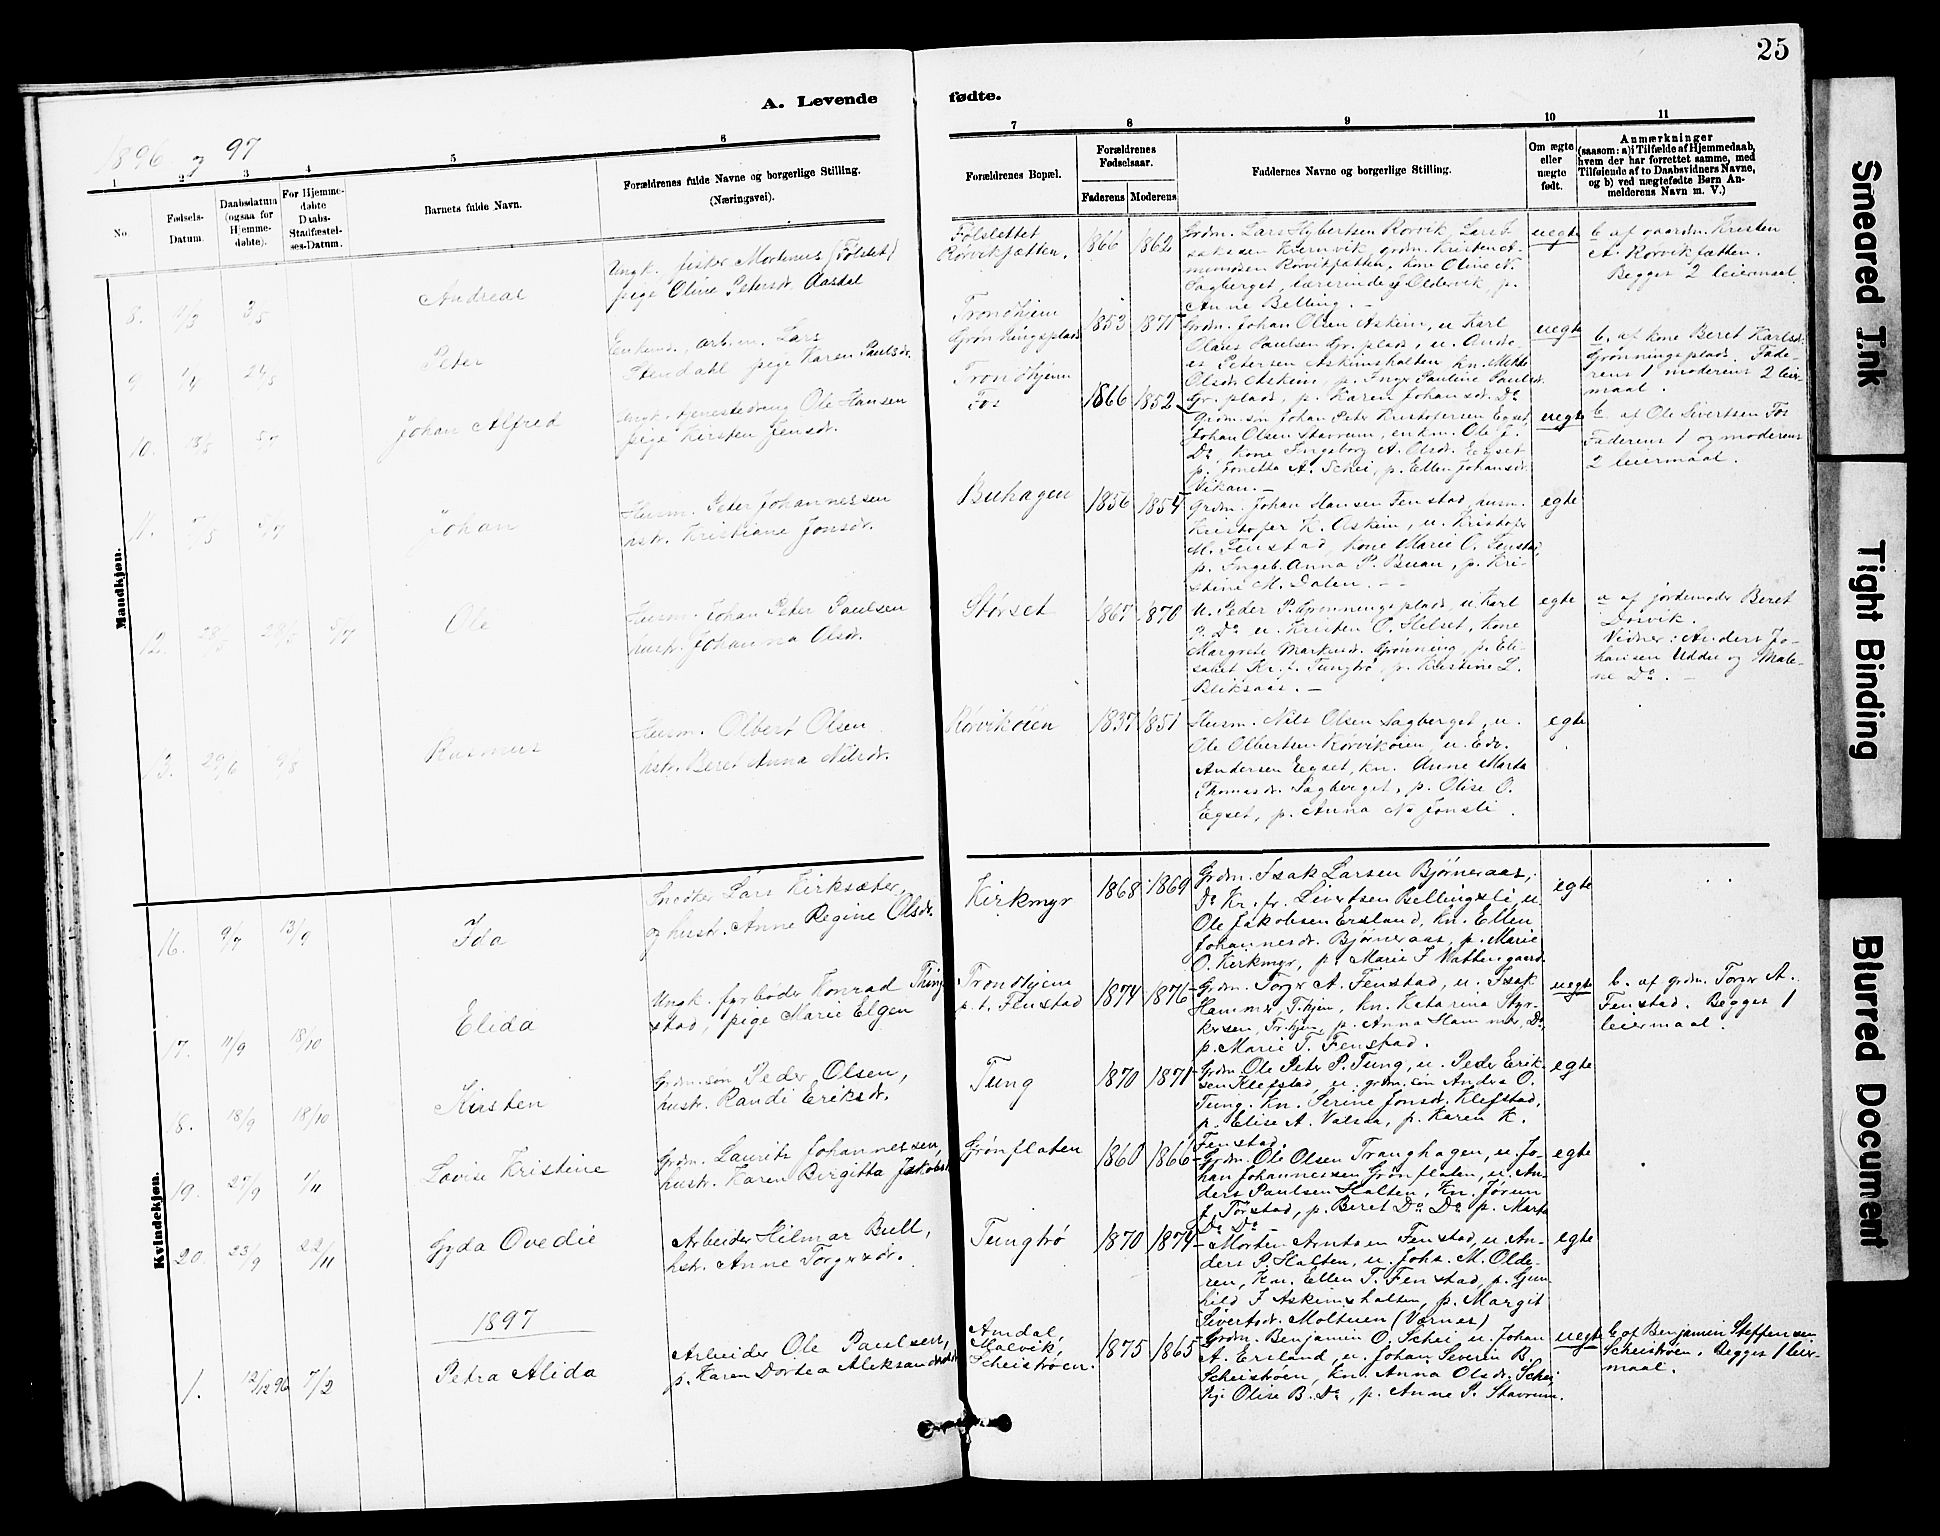 25
A. Levende fødte.
1896 og 97
1
2
3
4
5
6
7
8
9
10
11
No.
Fødsels-
Datum.
Daabsdatum
(ogsaa for
Hjemme-
døbte).
For Hjemme-
døbte
Daabs-
Stadfæstel-
ses-Datum.
Barnets fulde Navn.
Forældrenes fulde Navne og borgerlige Stilling.
(Næringsvei).
Forældrenes Bopæl.
Forældrenes
Fødselsaar.
Faderens
Moderens
Faddernes Navne og borgerlige Stilling.
Om ægte
eller
uægte
født.
Anmærkninger
(saasom: a) i Tilfælde af Hjemmedaab,
hvem der har forrettet samme, med
Tilføiende af to Daabsvidners Navne,
og b) ved uægtefødte Børn An-
melderens Navn m. V.)
Mandkjøn.
8.
Andreas
Ungk. fisker Mortinus (Følstet)
pige Oline Petersdr. Aasdal
Følslettet
Rørvikfætten.
1866
1862
Grdm. Lars Hybertsen Rørvik, Lars
mundsen Rørvikfætten, kone Oline N.
Sagberget, lærerinde Oldervik, p.
Anne Belling. —
uegte
b af gaardm. Kristen
A. Rørvikfætten.
Begges 2 leiermaal.
9.
Peter
Enkem., arb.m. Lars
Stendahl pige Karen Paulsdr.
Trondhjem
Grønningsplads
1853
1871
Grdm. Johan Olsen Askim, u. Karl
Olaus Paulsen Gr. plads, u. Andr-
es Petersen Askimshalten, kn. Mette
Olsdr. Askim, p. Inger Pauline Paulsdr.
Gr. plads, p. Karen Johansdr. Do
uegte
b. af kone Beret Karlsdr.
Grønningsplads. Fade-
rens 1 moderens 2 leier-
maal.
10.
Johan Alfred
Ungk. tjenestedreng Ole Hansen
pige Kirsten Jensdr.
Trondhjem
Fos
1866
1852
Grdm. søn Johan Peter Kristofersen Egset
Johan Olsen Stavrum, enkm. Ole J.
Do, kone Ingeborg A. Olsdr. Egset
p. Tonetta A. Schei, p. Ellen Johansdr.
Vikan. —
uegte
b. af Ole Sivertsen Fos
Faderens 1 og moderens
2 leiermaal.
11.
Johan
Husm. Peter Johannessen
hstr. Kristiane Jonsdr.
Buhagen
1856
1854
Grdm. Johan Hansen Fenstad, husm.
Kristofer K. Askim, u. Kristofer
M. Fenstad, kone Marie O. Fenstad,
p. Ingeb. Anna P. Buan, p. Kri-
stine M. Dalen. —
egte
12.
Ole
Husm. Johan Peter Paulsen
hustr. Johanna Olsdr.
Størset
1867
1870
U. Peder P. Grønningsplads, u. Karl
P. Do u. Kristen O. Helset, kone
Margrete Markusdr. Grønning, p. Eli-
sabet Kr. f. Tungtrø, p. Kristine L.
Bliksaas. —
egte
a af jordemoder Beret
Dorvik.
Vidner: Anders Jo-
hansen Uddu og Male-
ne Do. —
13.
29/6
9/8
Rasmus
Husm. Olbert Olsen
hstr. Beret Anna Nilsdr.
Rørvikøien
1837
1851
Husm. Nils Olsen Sagberget, u.
Ole Olbertsen Rørvikøien, u. Edv.
Andersen Egset, kn. Anne Marta
Thomasdr. Sagberget, p. Olise O.
Egset, p. Anna N. Jonsli.
egte
Kvindekjøn.
16.
9/7
13/9
Ida
Snedker Lars Kirksæter,
og hustr. Anne Regine Olsdr.
Kirkmyr
1868
1869
Grdm. Isak Larsen Bjørneraas,
Do Kr. fr. Sivertsen Bellingsli, u.
Ole Jakobsen Ersland, kn. Ellen
Johannesdr. Bjørneraas, p. Marie
O. Kirkmyr, p. Marie J Vattengaard
egte
17.
11/9
18/10
Elida
Ungk. fyrbøder Konrad Thing-
stad, pige Marie Elgen
Trondhjem
p. t. Fenstad
1874
1876
Grdm. Torger A. Fenstad, u. Isak
Hammer, T.hjem, kn. Katarina Styr-
kersen, Tr.hjem, p. Anna Hammer, Do,
p. Marie T. Fenstad.
uegte
b. af grdm. Torger A.
Fenstad. Begges 1
leiermaal.
18.
18/9
18/10
Kirsten
Grdm.søn Peder Olsen,
hustr. Randi Eriksdr.
Tung
1870
1871
Grdm. Ole Peter P. Tung, u. Peder Erik-
sen Klefstad, u. grdm. søn Anders O.
Tung. Kn. Serine Jonsdr. Klefstad,
p. Elise A. Valsaa, p. Karen K.
Fenstad.
egte
19.
27/9
1/11
Lovise Kristine
Grdm. Laurits Johannessen,
hustr. Karen Birgitta Jakobsdr.
Grønflaten
1860
1866
Grdm. Ole Olsen Tranghagen, u. Jo-
han Johannessen Grønflaten, u. An-
ders Paulsen Halten, Kn. Jørun
J. Tørstad, p. Beret Do Do p. Marta
Do Do
egte
20
23/9
22/11
Gyda Ovedie
Arbeider Hilmar Bull,
hstr. Anne Torgersdr.
Tungtrø
1870
1874
Morten Arntsen Fenstad, u. An-
ders P. Halten, u. Johs. M. Olde-
ren, Kn. Ellen T. Fenstad, p. Gun-
hild J Askimshalten, p. Margit
Sivertsdr. Moltuen (Værnes)
egte
1897
1.
12/12 96
7/2
Petra Alida
Arbeider Ole Paulsen,
p. Karen Dortea Aleksandersdr.
Amdal,
Malvik,
Scheistrøen.
1875
1865
Grdm. Benjamin O. Schei u. Johan
A. Ersland, u. Johan Severin B.
Scheistrøen, Kn. Anna Olsdr. Schei
Pige Olise B. Do, p. Anne P. Stavrum.
uegte
b. af Benjamin Steffensen
Scheistrøen. Begges 1 leier-
maal.
Smeared Ink
Tight Binding
Blurred Document